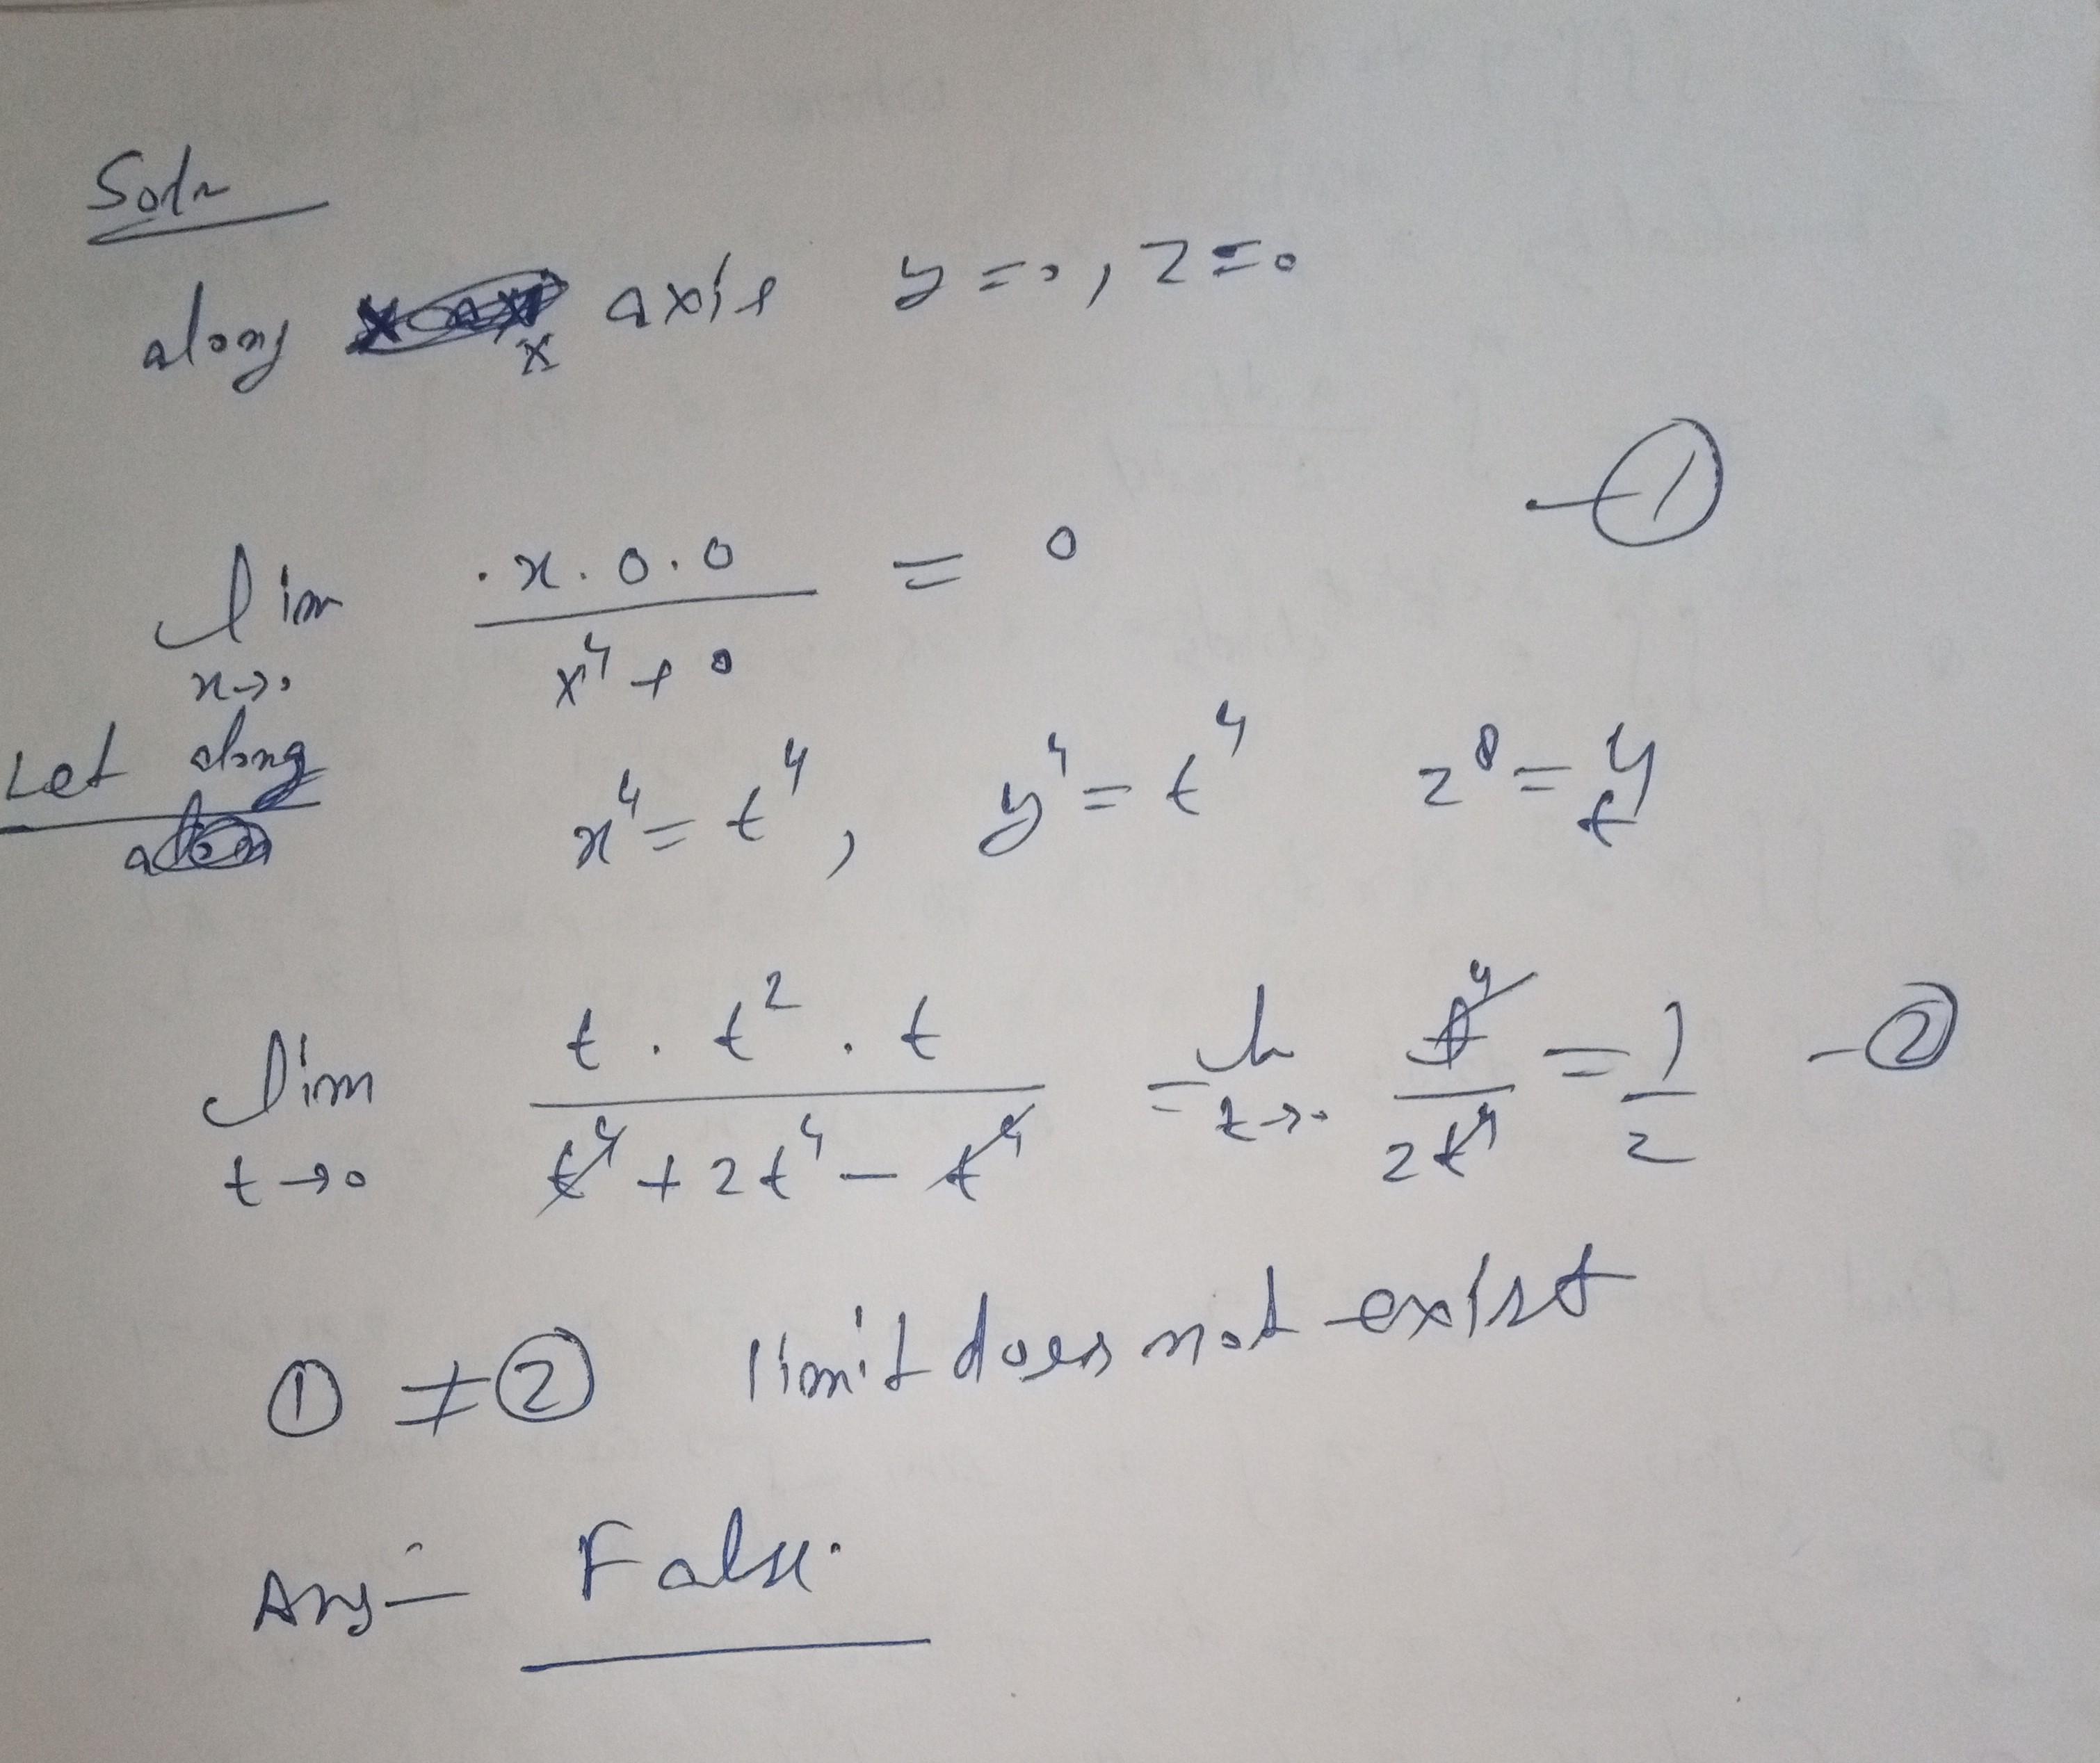 Soln
along x axis y = 0, z = 0
lim x→0 x.0.0 / x⁴ + 0 = 0 — ①
Let along x⁴ = t⁴, y⁴ = t⁴ z⁸ = t⁴
lim t→0 t . t² . t / t⁴ + 2t⁴ - t⁴ = lt t→0 t⁴ / 2t⁴ = 1/2 - ②
① ≠ ② limit does not exist
Ans:- False.